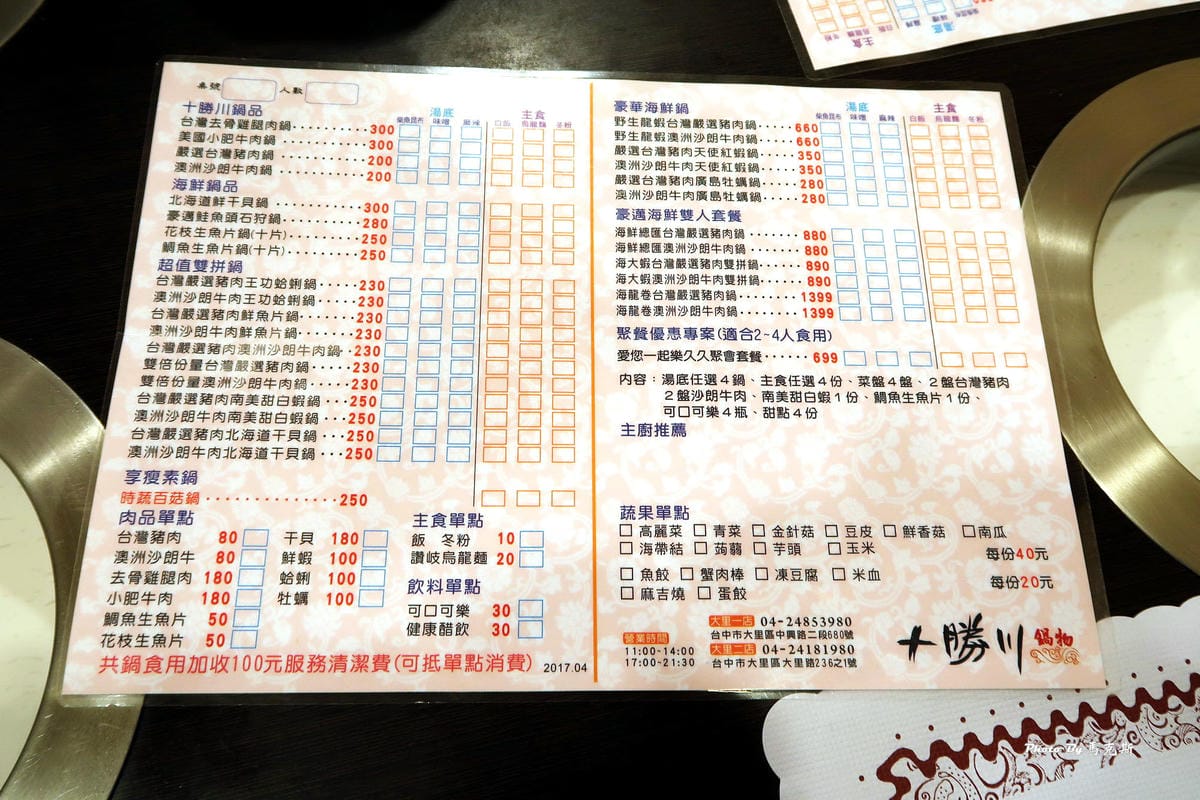 桌號 人數
十勝川鍋品 湯底 主食
柴魚昆布 味噌 麻辣 白飯 烏龍麵 冬粉
台灣去骨雞腿肉鍋··········300
美國小肥牛肉鍋··········300
嚴選台灣豬肉鍋··········200
澳洲沙朗牛肉鍋··········200
海鮮鍋品
北海道鮮干貝鍋··········300
豪邁鮭魚頭石狩鍋········280
花枝生魚片鍋(十片)······250
鯛魚生魚片鍋(十片)······250
超值雙拼鍋
台灣嚴選豬肉王功蛤蜊鍋····230
澳洲沙朗牛肉王功蛤蜊鍋····230
台灣嚴選豬肉鮮魚片鍋·····230
澳洲沙朗牛肉鮮魚片鍋·····230
台灣嚴選豬肉澳洲沙朗牛肉鍋··230
雙倍份量台灣嚴選豬肉鍋····230
雙倍份量澳洲沙朗牛肉鍋····230
台灣嚴選豬肉南美甜白蝦鍋···250
澳洲沙朗牛肉南美甜白蝦鍋···250
台灣嚴選豬肉北海道干貝鍋···250
澳洲沙朗牛肉北海道干貝鍋···250
享瘦素鍋
時蔬百菇鍋··············250
肉品單點
台灣豬肉 80 干貝 180
澳洲沙朗牛 80 鮮蝦 100
去骨雞腿肉 180 蛤蜊 100
小肥牛肉 180 牡蠣 100
鯛魚生魚片 50
花枝生魚片 50
主食單點
飯 冬粉 10
讚岐烏龍麵 20
飲料單點
可口可樂 30
健康醋飲 30
共鍋食用加收100元服務清潔費(可抵單點消費) 2017.04
豪華海鮮鍋 湯底 主食
柴魚昆布 味噌 麻辣 白飯 烏龍麵 冬粉
野生龍蝦台灣嚴選豬肉鍋·····660
野生龍蝦澳洲沙朗牛肉鍋·····660
嚴選台灣豬肉天使紅蝦鍋·····350
澳洲沙朗牛肉天使紅蝦鍋·····350
嚴選台灣豬肉廣島牡蠣鍋·····280
澳洲沙朗牛肉廣島牡蠣鍋·····280
豪邁海鮮雙人套餐
海鮮總匯台灣嚴選豬肉鍋······880
海鮮總匯澳洲沙朗牛肉鍋······880
海大蝦台灣嚴選豬肉雙拼鍋·····890
海大蝦澳洲沙朗牛肉雙拼鍋·····890
海龍卷台灣嚴選豬肉鍋·······1399
海龍卷澳洲沙朗牛肉鍋·······1399
聚餐優惠專案(適合2~4人食用)
愛您一起樂久久聚會套餐······699
內容：湯底任選4鍋、主食任選4份、菜盤4盤、2盤台灣豬肉
2盤沙朗牛肉、南美甜白蝦1份、鯛魚生魚片1份、
可口可樂4瓶、甜點4份
主廚推薦
蔬果單點
高麗菜 青菜 金針菇 豆皮 鮮香菇 南瓜
海帶結 蒟蒻 芋頭 玉米 每份40元
魚餃 蟹肉棒 凍豆腐 米血 每份20元
麻吉燒 蛋餃
營業時間
11:00-14:00
17:00-21:30
大里一店 04-24853980
台中市大里區中興路二段680號
大里二店 04-24181980
台中市大里區大里路236之1號
十勝川 鍋物
Photo By 馬克斯